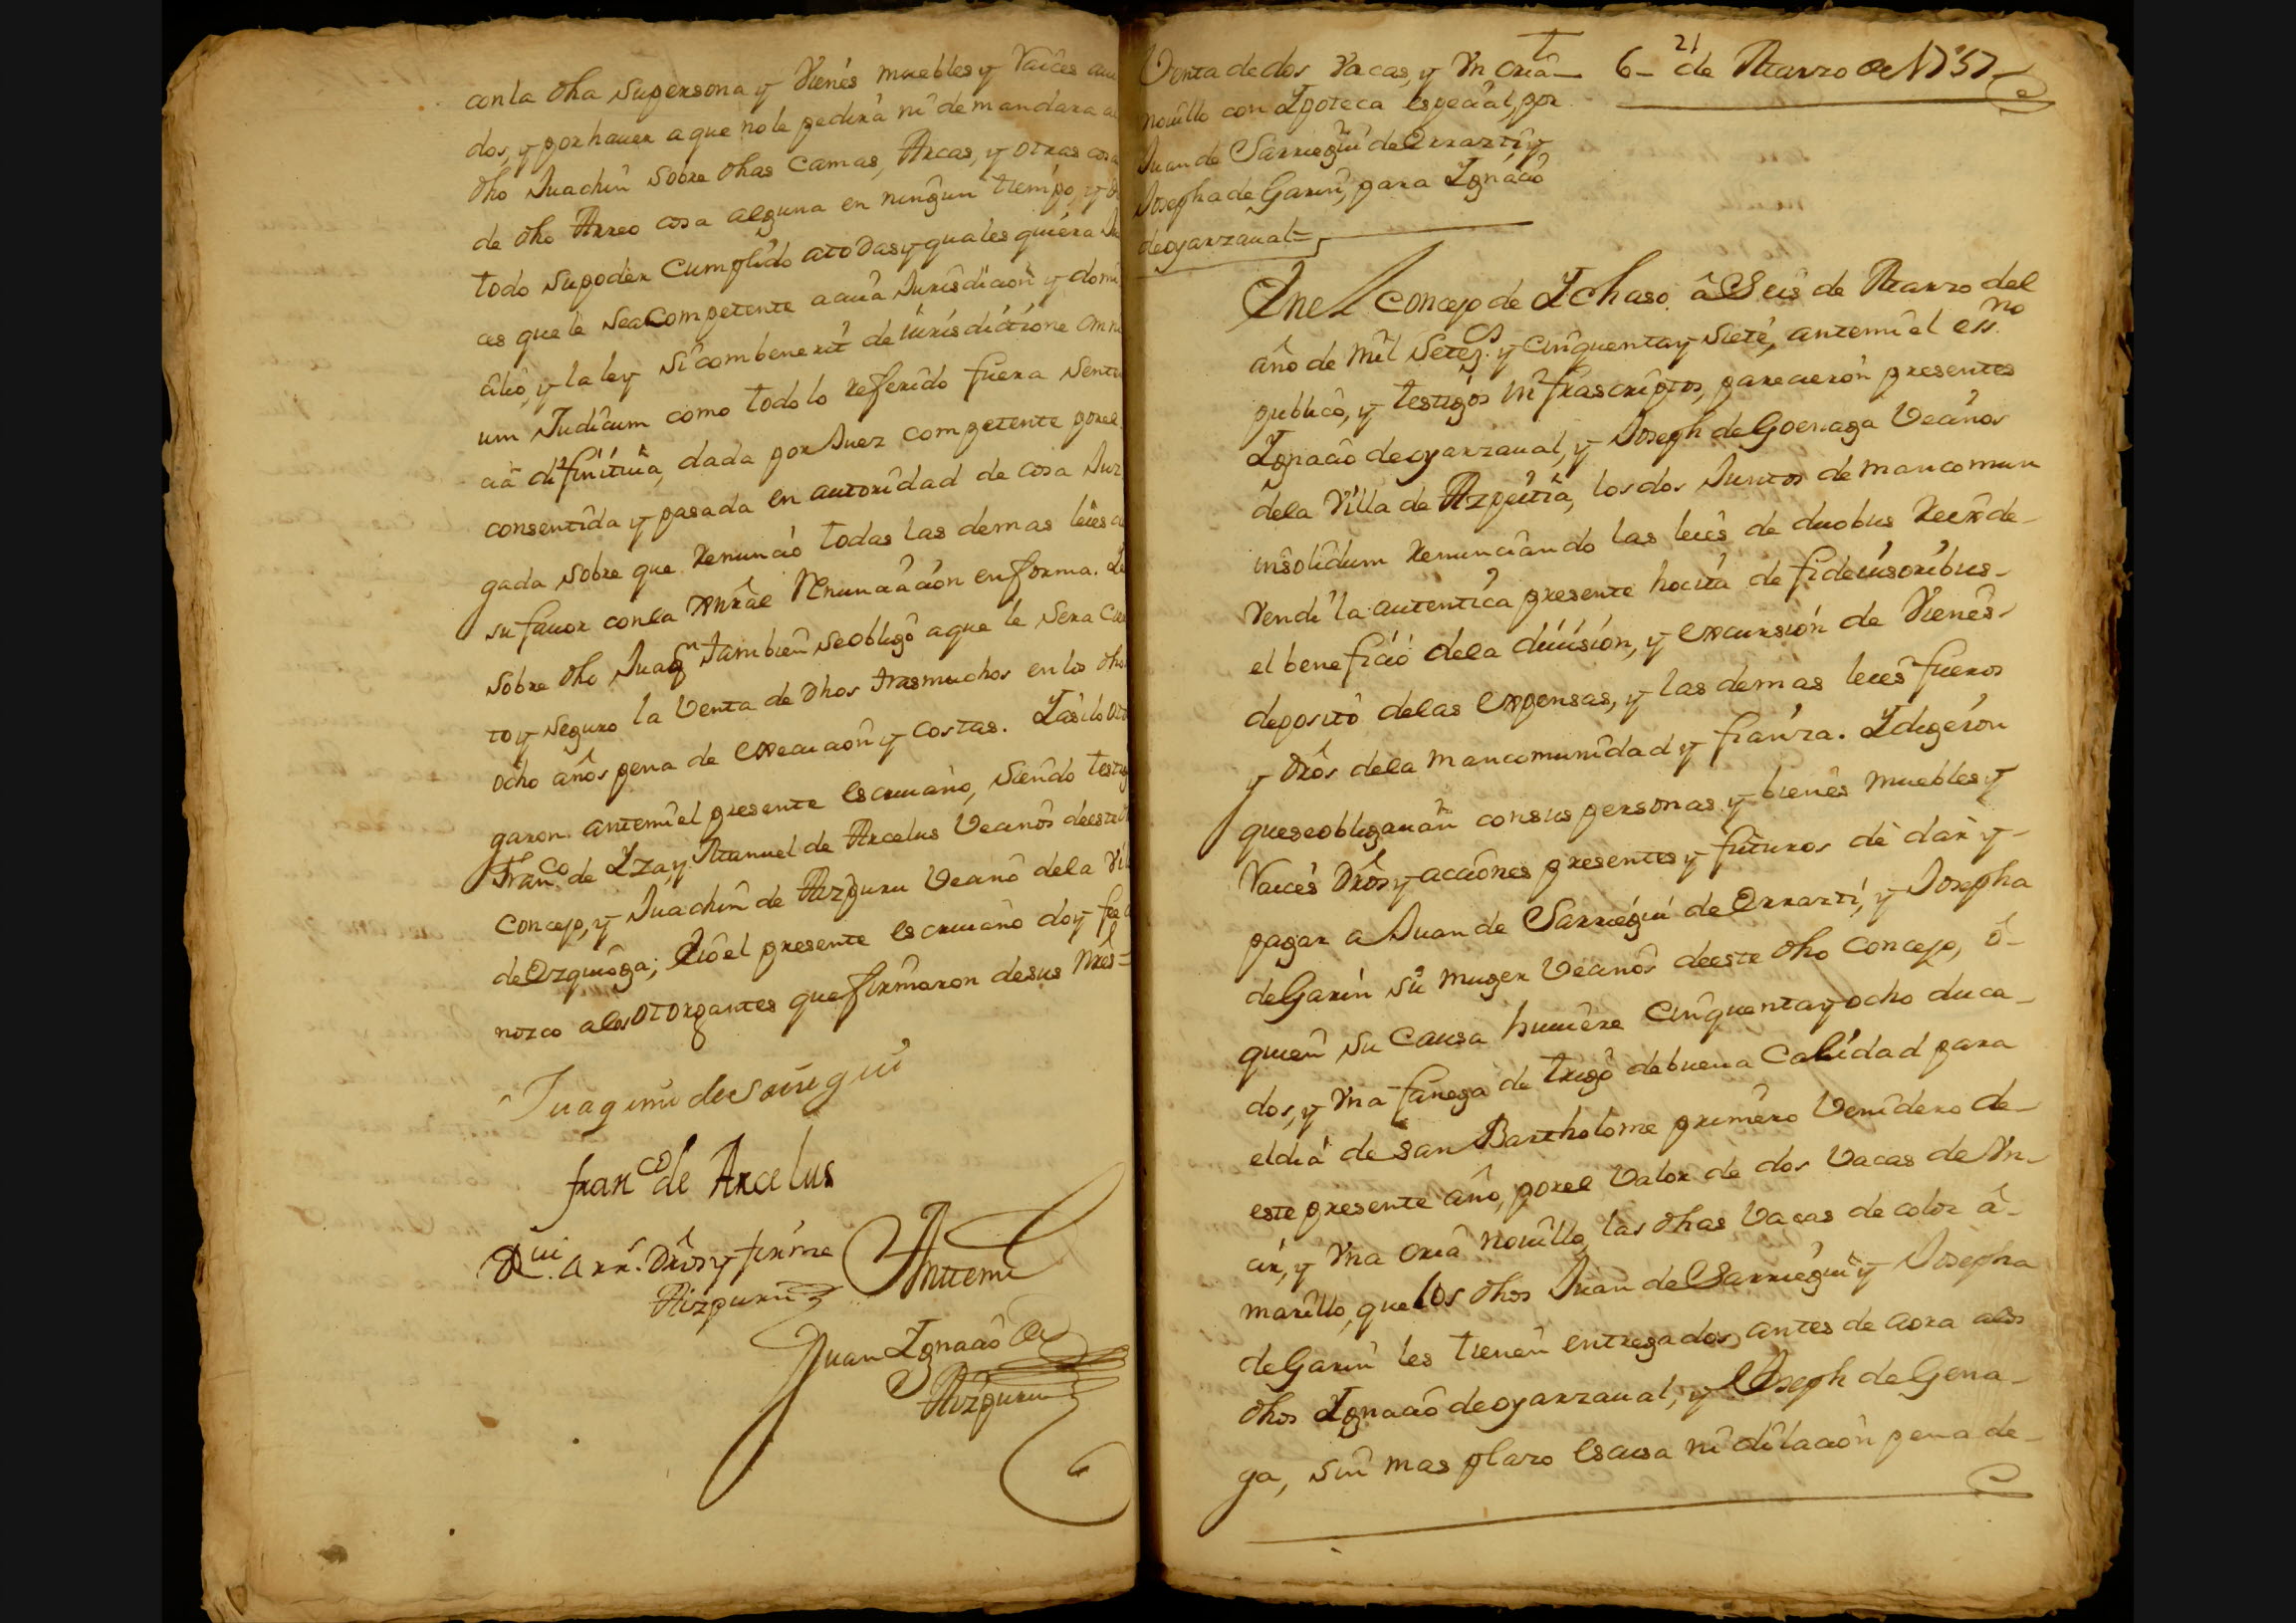 con la dha su persona y Vienes muebles y Raices aui
dos, y por hauer a que no le pedira ni demandara al
dho Juachin sobre dhas Camas, Arcas, y otras cosas
de dho Arreo cosa alguna en ningun tiempo, y dio
todo su poder Cumplido a todas y quales quiera Ju
as que le sea Competente a cuia Jurisdicion y domi
cilio, y la ley si combenerit de iurisdictione omni
um Judicum como todo lo referido fuera senten
cia difinitiua, dada por Juez competente por el
consentida y pasada en autoridad de cosa Juz
gada sobre que renunció todas las demas leies de
su fauor con la Genral Renunciacion en forma. Y
sobre dho Juaqn tambien se obligó a que le sera cier
to y seguro la Venta de dhos tras muchos en los dhos
ocho años pena de execucion y costas. Y asi lo otor
garon ante mi el presente escriuano, siendo testigos
Franco de Yza, y Manuel de Arcelus Vecinos de este
Concejo, y Juachin de Aizpuru Vecino de la Villa
de Ezquioga; Y io el presente escriuano doy fee
nozco a los otorgantes que firmaron de sus Nres=
Juaquin de Sarregui
franco de Arcelus
arr. Dros y firme
Aizpuru
Antemi
Juan Ygnacio de
Aizpuru
Venta de dos Vacas, y Vn Cria
nouillo con Ypoteca especial, por
Juan de Sarriegui de Errazti y
Josepha de Garin, para Ygnacio
de oyarzaual=
6- de Marzo de 1757
21
En el Concejo de Ychaso â Seis de Marzo del
año de mil Setezs. y cinquenta y siete, ante mi el essno
publico, y testigos infrascriptos, parecieron presentes
Ygnacio de oyarzaual, y Joseph de Goenaga Vecinos
de la Villa de Azpeitia, los dos Juntos de mancomun
insolidum renunciando las leies de duobus reix de-
vendi la autentica presente hocita de fideiusoribus-
el beneficio de la diuision, y excursion de Vienes-
deposito de las expensas, y las demas leies fueros
y Dros de la mancomunidad y fianza. Y digeron
que se obligauan con sus personas y bienes muebles y
Raices Dros y acciones presentes y futuros de dar y-
pagar a Juan de Sarriegui de Errazti, y Josepha
de Garin su muger Vecinos de este dho Concejo, ô-
quien su Causa huuiere Cinquenta y ocho duca-
dos, y Vna fanega de trigo de buena Calidad para
el dia de san Bartholome primero Venidero de-
este presente año, por el Valor de dos Vacas de Vn-
cir, y Vna Cria nouillo, las dhas Vacas de color â-
marillo, que los dhos Juan de Sarriegui y Josepha
de Garin les tienen entregados, antes de aora alos
dhos Ygnacio de oyarzaual, y Joseph de Gena-
ga, sin mas plazo escusa ni dilacion pena de-